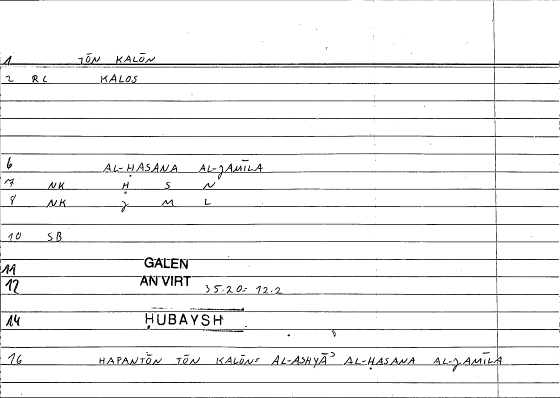 1 TŌN KALŌN
2 RC KALOS
6 AL-ḤASANA AL-ǦAMĪLA
7 NK Ḥ S N
8 NK Ǧ M L
10 SB
11 GALEN
12 AN VIRT 35.20= 12.2
14 ḤUBAYSH
16 HAPANTŌN TŌN KALŌN= AL-ASHYĀʾ AL-ḤASANA AL-ǦAMĪLA